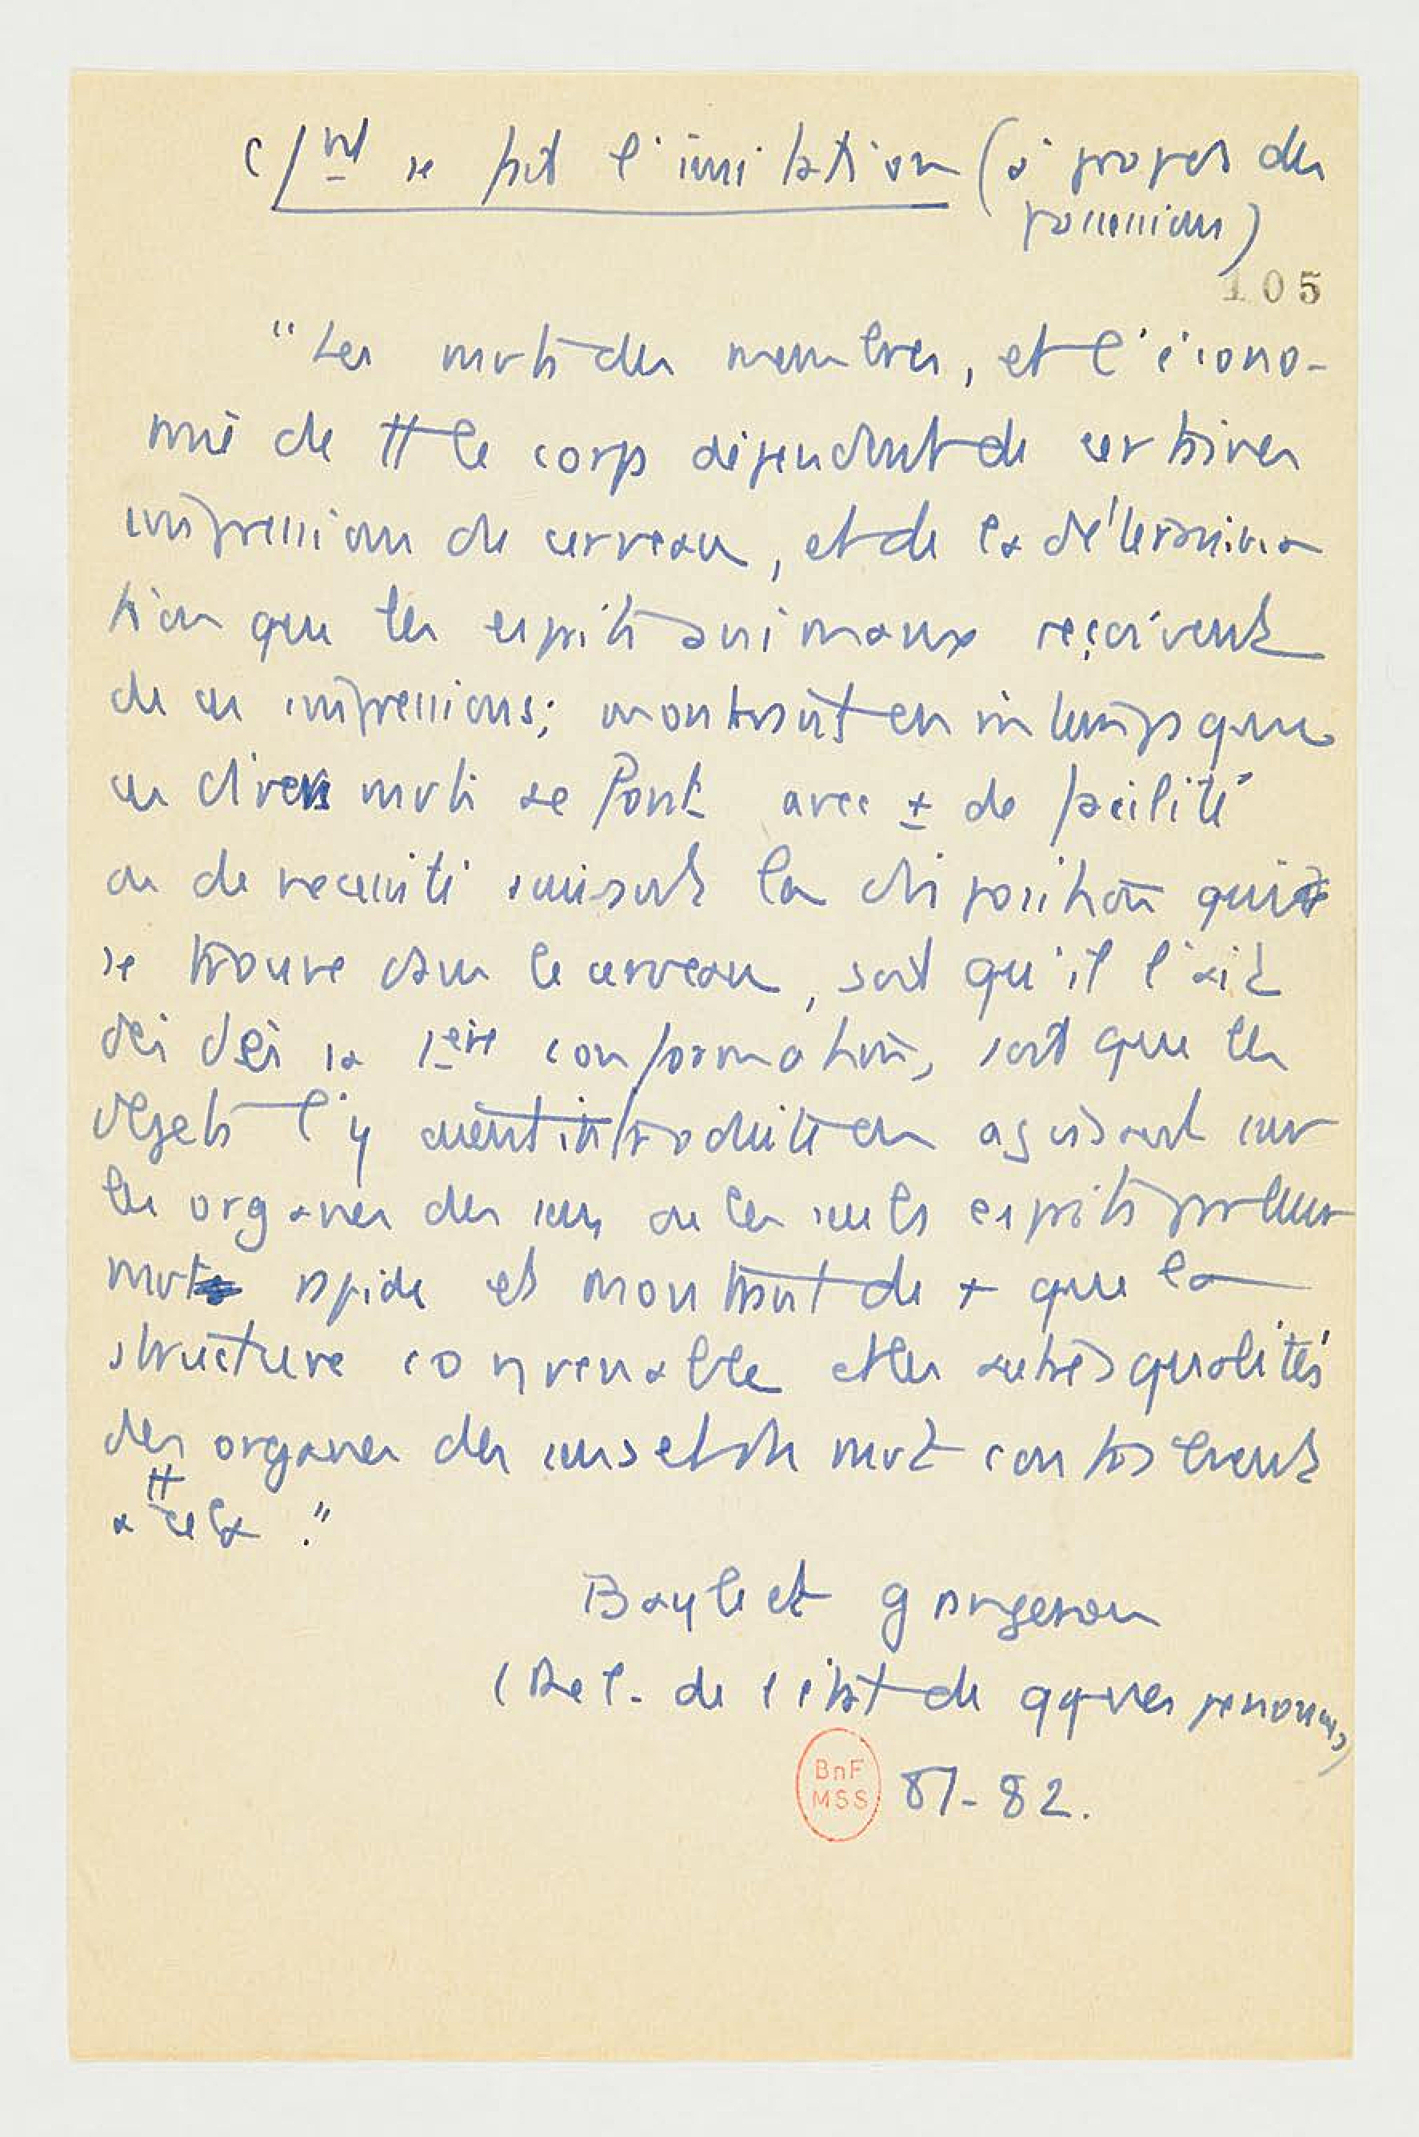 c/nt se fait l'imitation (à propos des
possessions)
105
"Les mvts des membres, et l'écono-
mie de tt le corps dépendent de certaines
impressions du cerveau, et de la détermina
tion que les esprits animaux reçoivent
de ces impressions; montrant en m temps que
ces divers mvts se font avec ± de facilité
ou de necessité suivant la disposition qui
se trouve dans le cerveau, soit qu'il l'ait
dès la 1ère conformation, soit que les
objets l'y aient introduite en agissant sur
les organes des sens ou les seuls esprits par leur
mvt rapide et montrant de + que la
structure convenable et les autres qualités
des organes des sens et du mvt contribuent
à tt cela."
Bayle et Grangeron
(Rel. de l'état de qques personnes)
81-82.
BnF
MSS